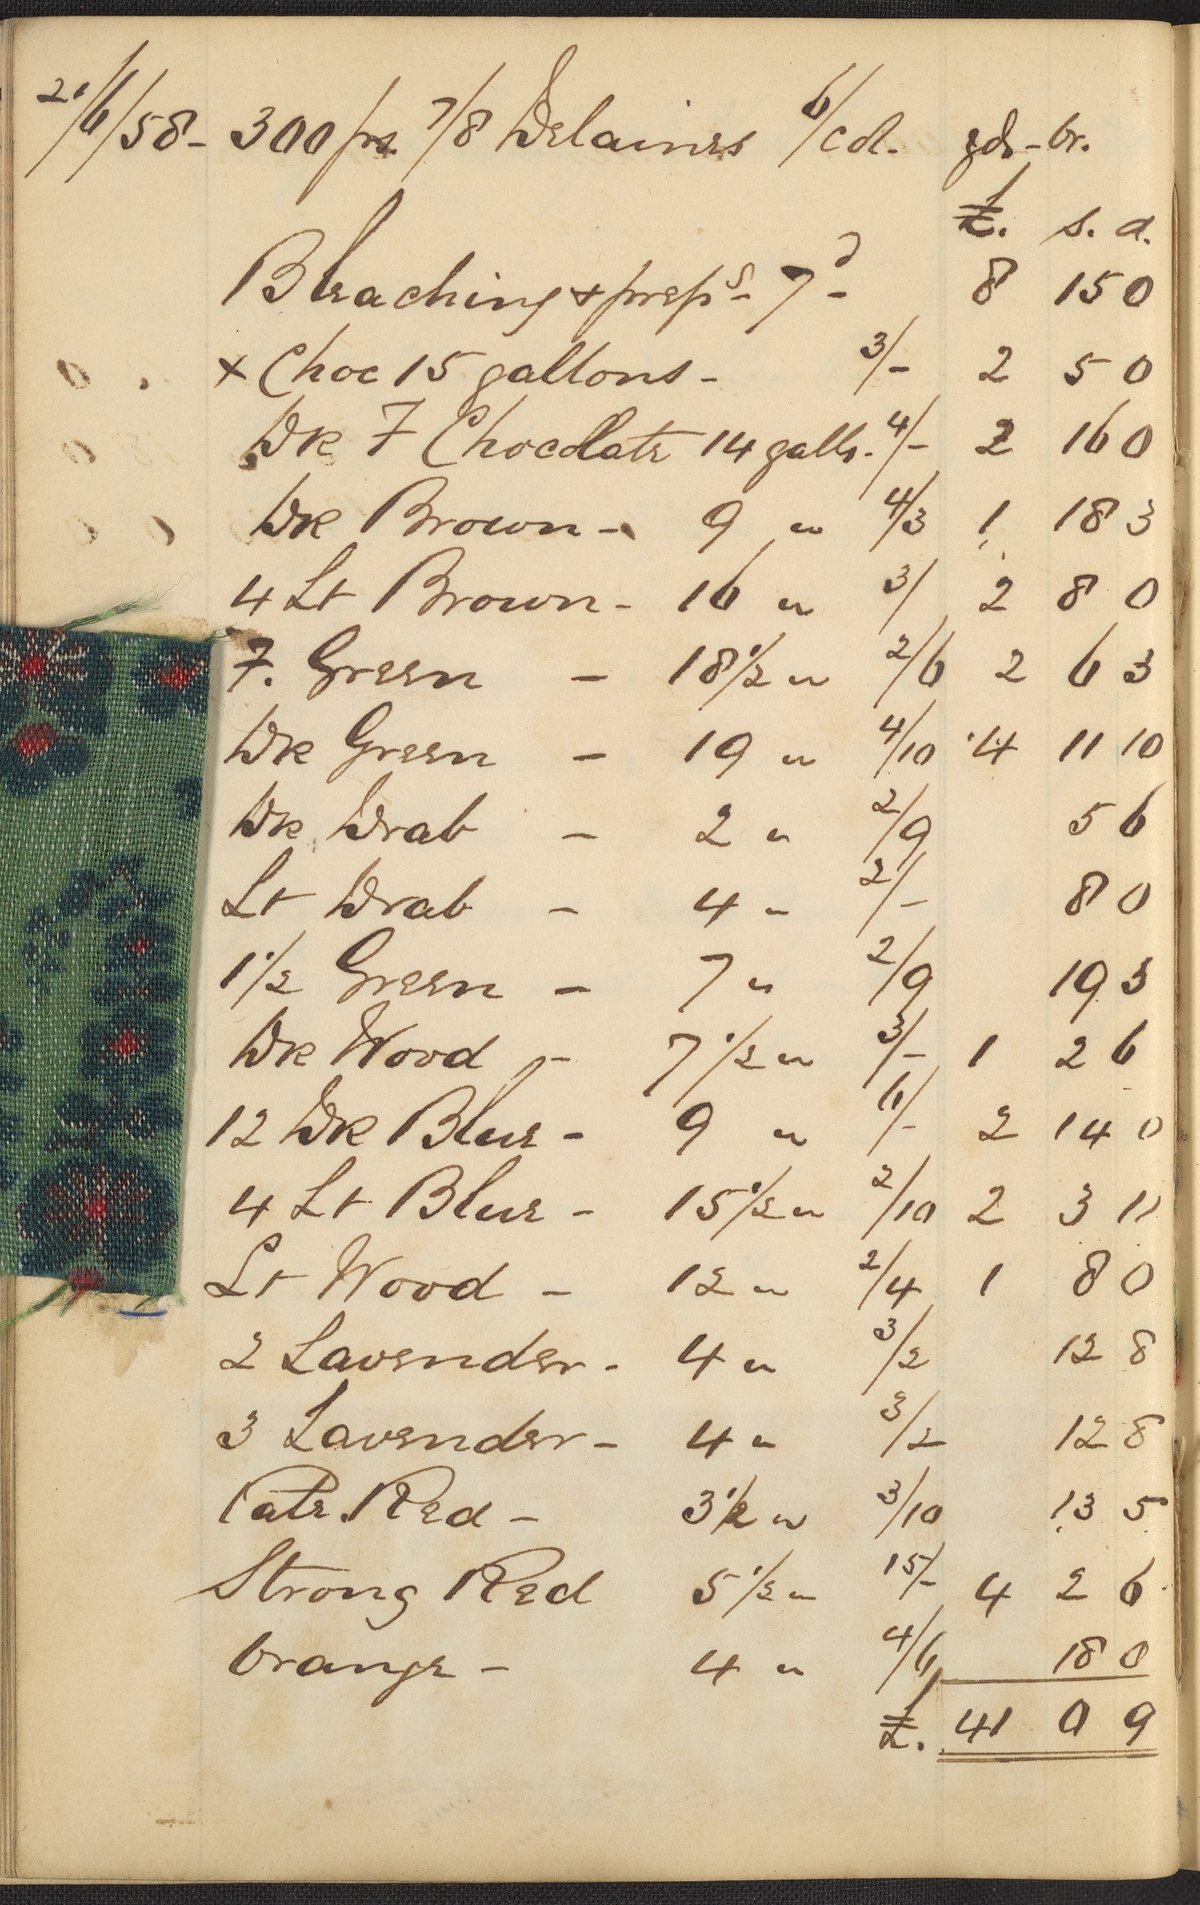 21/6/58- 300 ps. 7/8 Delaines 6/col. gds-br.
£. s. d.
Bleaching & preps- 7d- 8 15 0
x Choc 15 gallons - 3/- 2 5 0
Dk F Chocolate 14 galls. 4/- 2 16 0
Dk Brown - 9 " 4/3 1 18 3
4 Lt Brown - 16 " 3/ 2 8 0
F. Green - 18 1/2 " 2/6 2 6 3
Dk Green - 19 " 4/10 4 11 10
Dk Drab - 2 " 2/9 5 6
Lt Drab - 4 " 2/- 8 0
1 1/2 Green - 7 " 2/9 19 3
Dk Wood - 7 1/2 " 3/- 1 2 6
12 Dk Blue - 9 " 6/- 2 14 0
4 Lt Blue - 15 1/2 " 2/10 2 3 11
Lt Wood - 12 " 2/4 1 8 0
2 Lavender - 4 " 3/2 12 8
3 Lavender - 4 " 3/2 12 8
Pale Red - 3 1/2 " 3/10 13 5
Strong Red 5 1/2 " 15/- 4 2 6
Orange - 4 " 4/6 18 0
£. 41 0 9